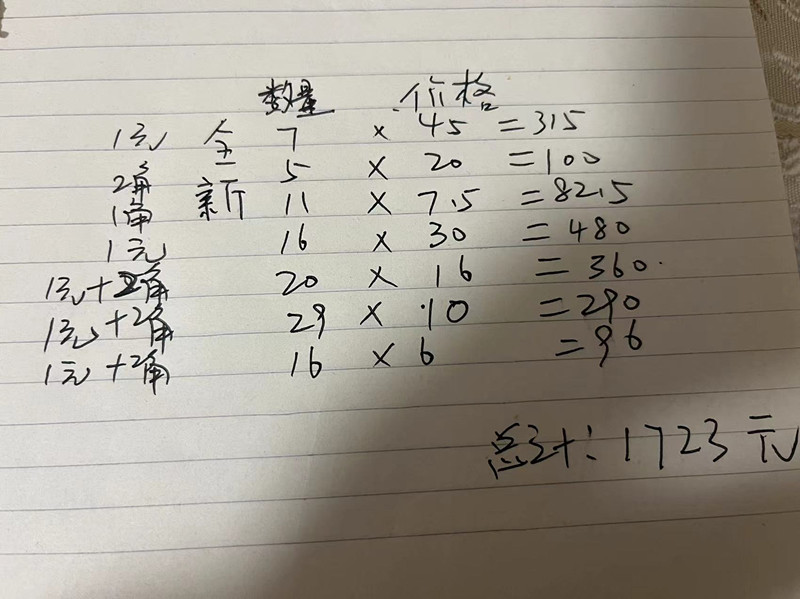 数量 价格
1元 全 7 × 45 = 315
2角 5 × 20 = 100
1角 新 11 × 7.5 = 82.5
1元 16 × 30 = 480
1元+2角 20 × 16 = 360.
1元+2角 29 × 10 = 290
1元+2角 16 × 6 = 96
总计: 1723元